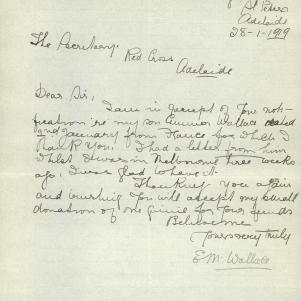 St Peters
Adelaide
28-1-1919
The Secretary.
Red Cross
Adelaide
Dear Sir,
I am in receipt of your not-
ification re my son Gunner Wallace dated
2nd January from France for which I
thank you. I had a letter from him
whilst I was in Melbourne three weeks
ago, I was glad to have it.
Thanking you again
and trusting you will accept my small
donation of one guinea for your funds
Believe me
Yours very truly
E M Wallace